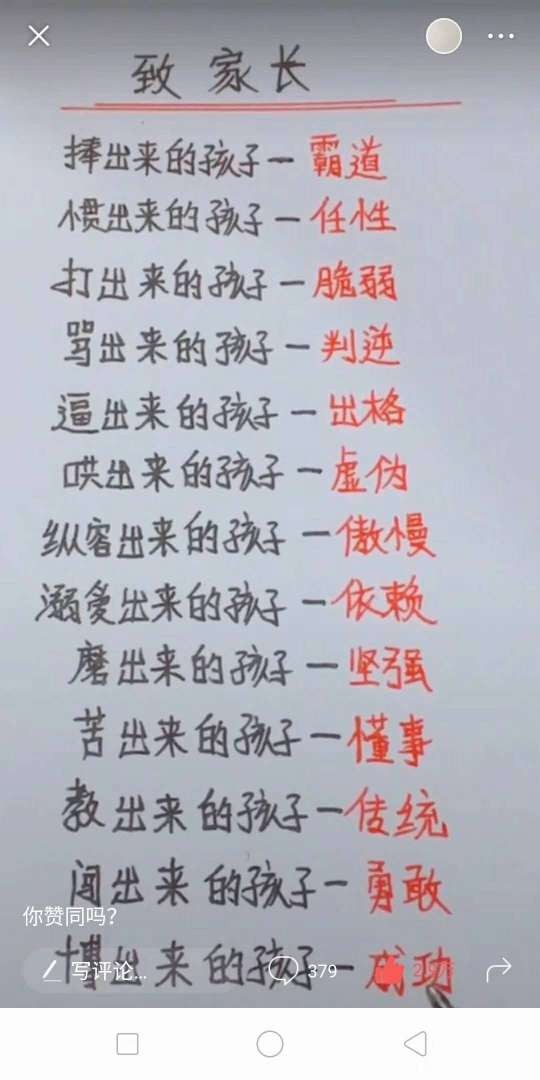 致家长
捧出来的孩子—霸道
惯出来的孩子—任性
打出来的孩子—脆弱
骂出来的孩子—判逆
逼出来的孩子—出格
哄出来的孩子—虚伪
纵容出来的孩子—傲慢
溺爱出来的孩子—依赖
磨出来的孩子—坚强
苦出来的孩子—懂事
教出来的孩子—传统
闯出来的孩子—勇敢
你赞同吗?
博出来的孩子—成功
写评论... 379